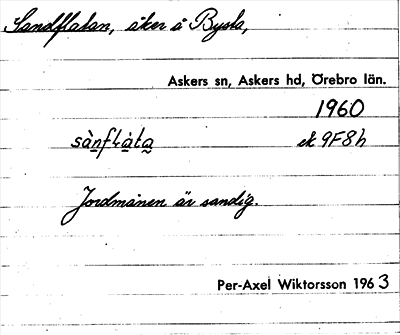 Sandflatan, åker å Bysta,
Askers sn, Askers hd, Örebro län.
1960
sànfláta ek 9F8h
Jordmånen är sandig.
Per-Axel Wiktorsson 1963